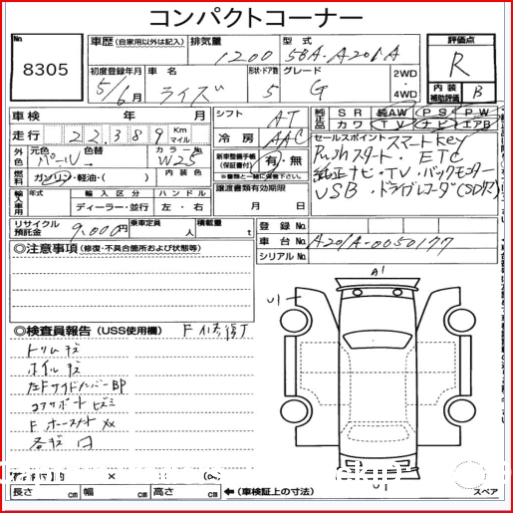 コンパクトコーナー
No. 8305
車歴 (自家用以外は記入) 排気量 1200 型式 5BA-A201A
評価点 R
初度登録年月 5/6月 車名 ライズ 形状・ドア数 5 グレード G 2WD・4WD
内装補助評価 B
車検 年 月 シフト AT
純正 SR 純AW PS PW
カワ TV ナビ エアB
走行 22,389 Km マイル 冷房 AAC
セールスポイント スマートKey
Pushスタート・ETC
純正ナビ・TV・バックモニター
USB・ドライブレコーダ(SDR)
外色 元色 パール 色替 カラーNo. W25
新車整備手帳(保証書付) 有・無
※書類と一緒に保管下さい。
燃料 ガソリン・軽油・( ) 内装色
輸入車用 年式 輸入区分 ハンドル
ディーラー・並行 左・右
譲渡書類有効期限 月 日
リサイクル預託金 9,000円 乗定員 人 積載量 t
登録No.
車台No. A201A-0050177
シリアルNo.
◎注意事項 (修復・不具合箇所および状態等)
A1
U1
◎検査員報告 (USS使用欄) F修復
トリムキズ
ホイルキズ
左Fサイドメンバー
コアサポート
各キズ凹
U1
長さ cm 幅 cm 高さ cm ←(車検証上の寸法)
スペア